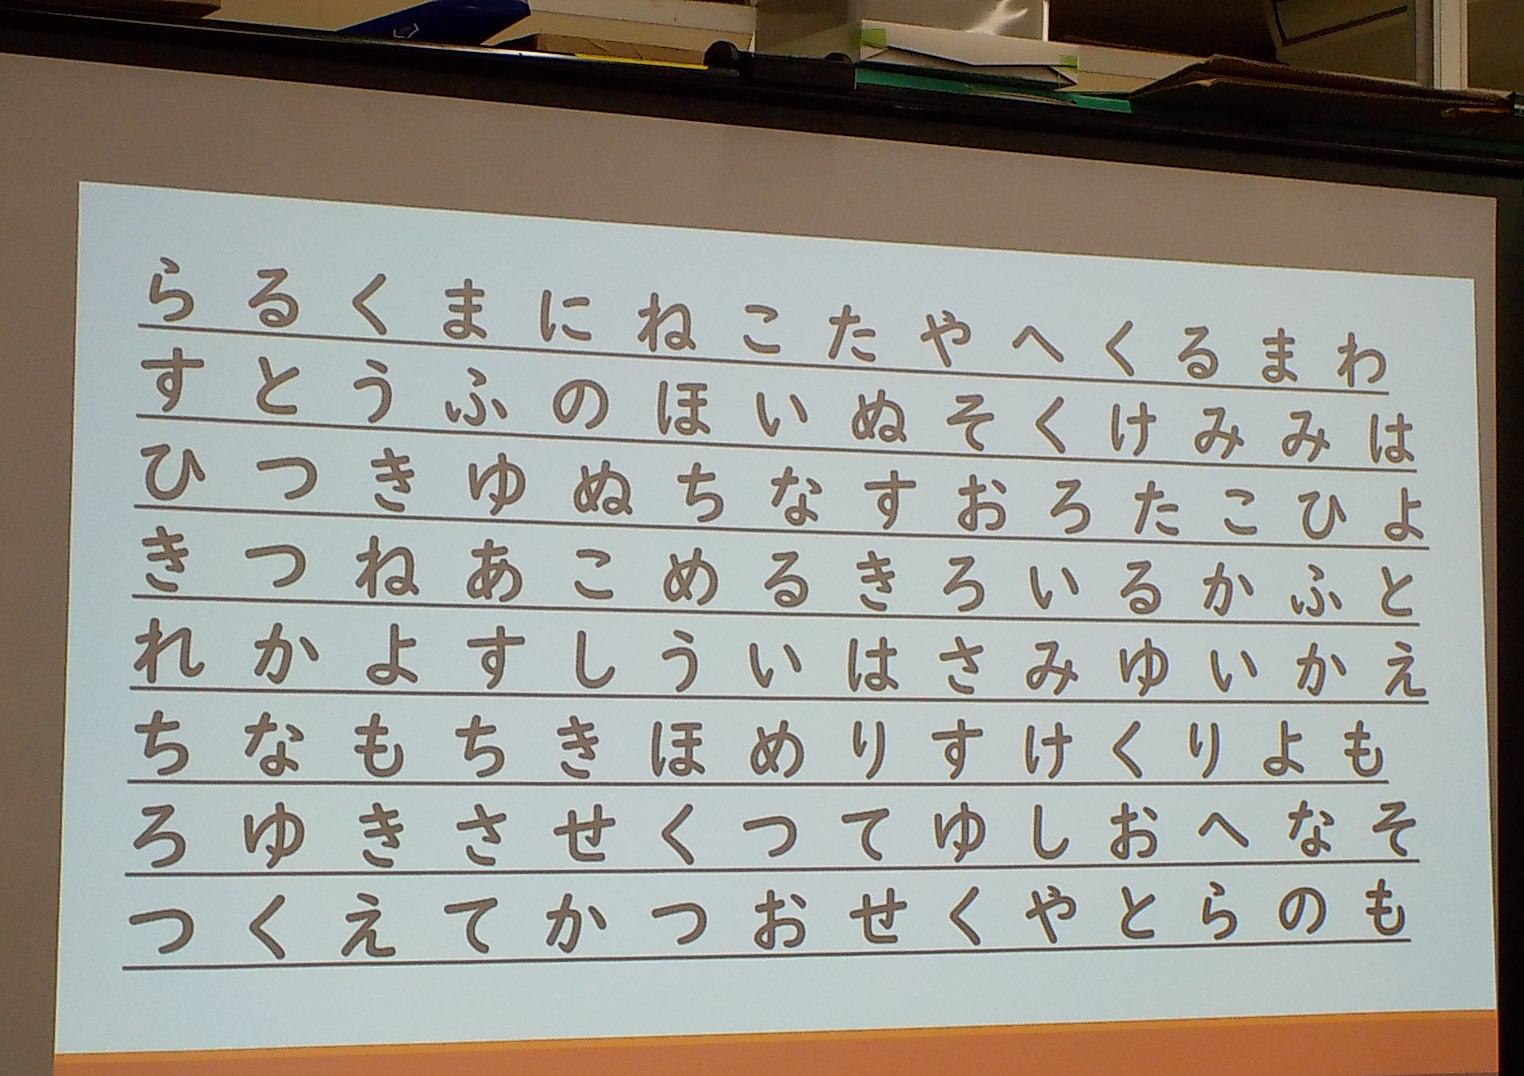 らるくまにねこたやへくるまわ
すとうふのほいぬそくけみみは
ひつきゆぬちなすおろたこひよ
きつねあこめるきろいるかふと
れかよすしういはさみゆいかえ
ちなもちきほめりすけくりよも
ろゆきさせくつてゆしおへなそ
つくえてかつおせくやとらのも